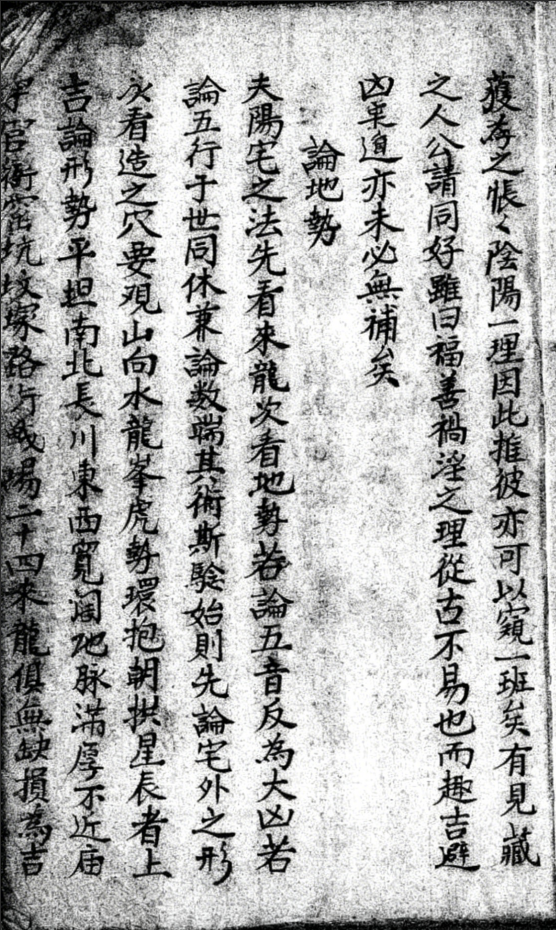 獲存之悵々陰陽一理因此推彼亦可以窺一班矣有見藏
之人公請同好雖曰福善禍淫之理從古不易也而趣吉避
凶車道亦未必無補矣
論地勢
夫陽宅之法先看來龍次看地勢若論五音反為大凶若
論五行于世同休兼論数端其術斯驗始則先論宅外之形
次看造之穴要观山向水龍峯虎勢環抱朝拱星辰者上
吉論形勢平坦南北長川東西寬闊地脉滿厚不近庙
宇官衙窑坑坟塚路行戰場二十四來龍俱無缺損為吉